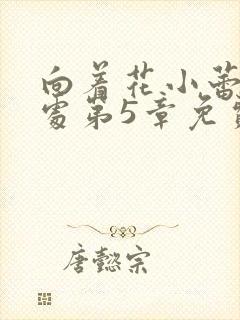 向着花小蕾
处第5章免
唐懿宗